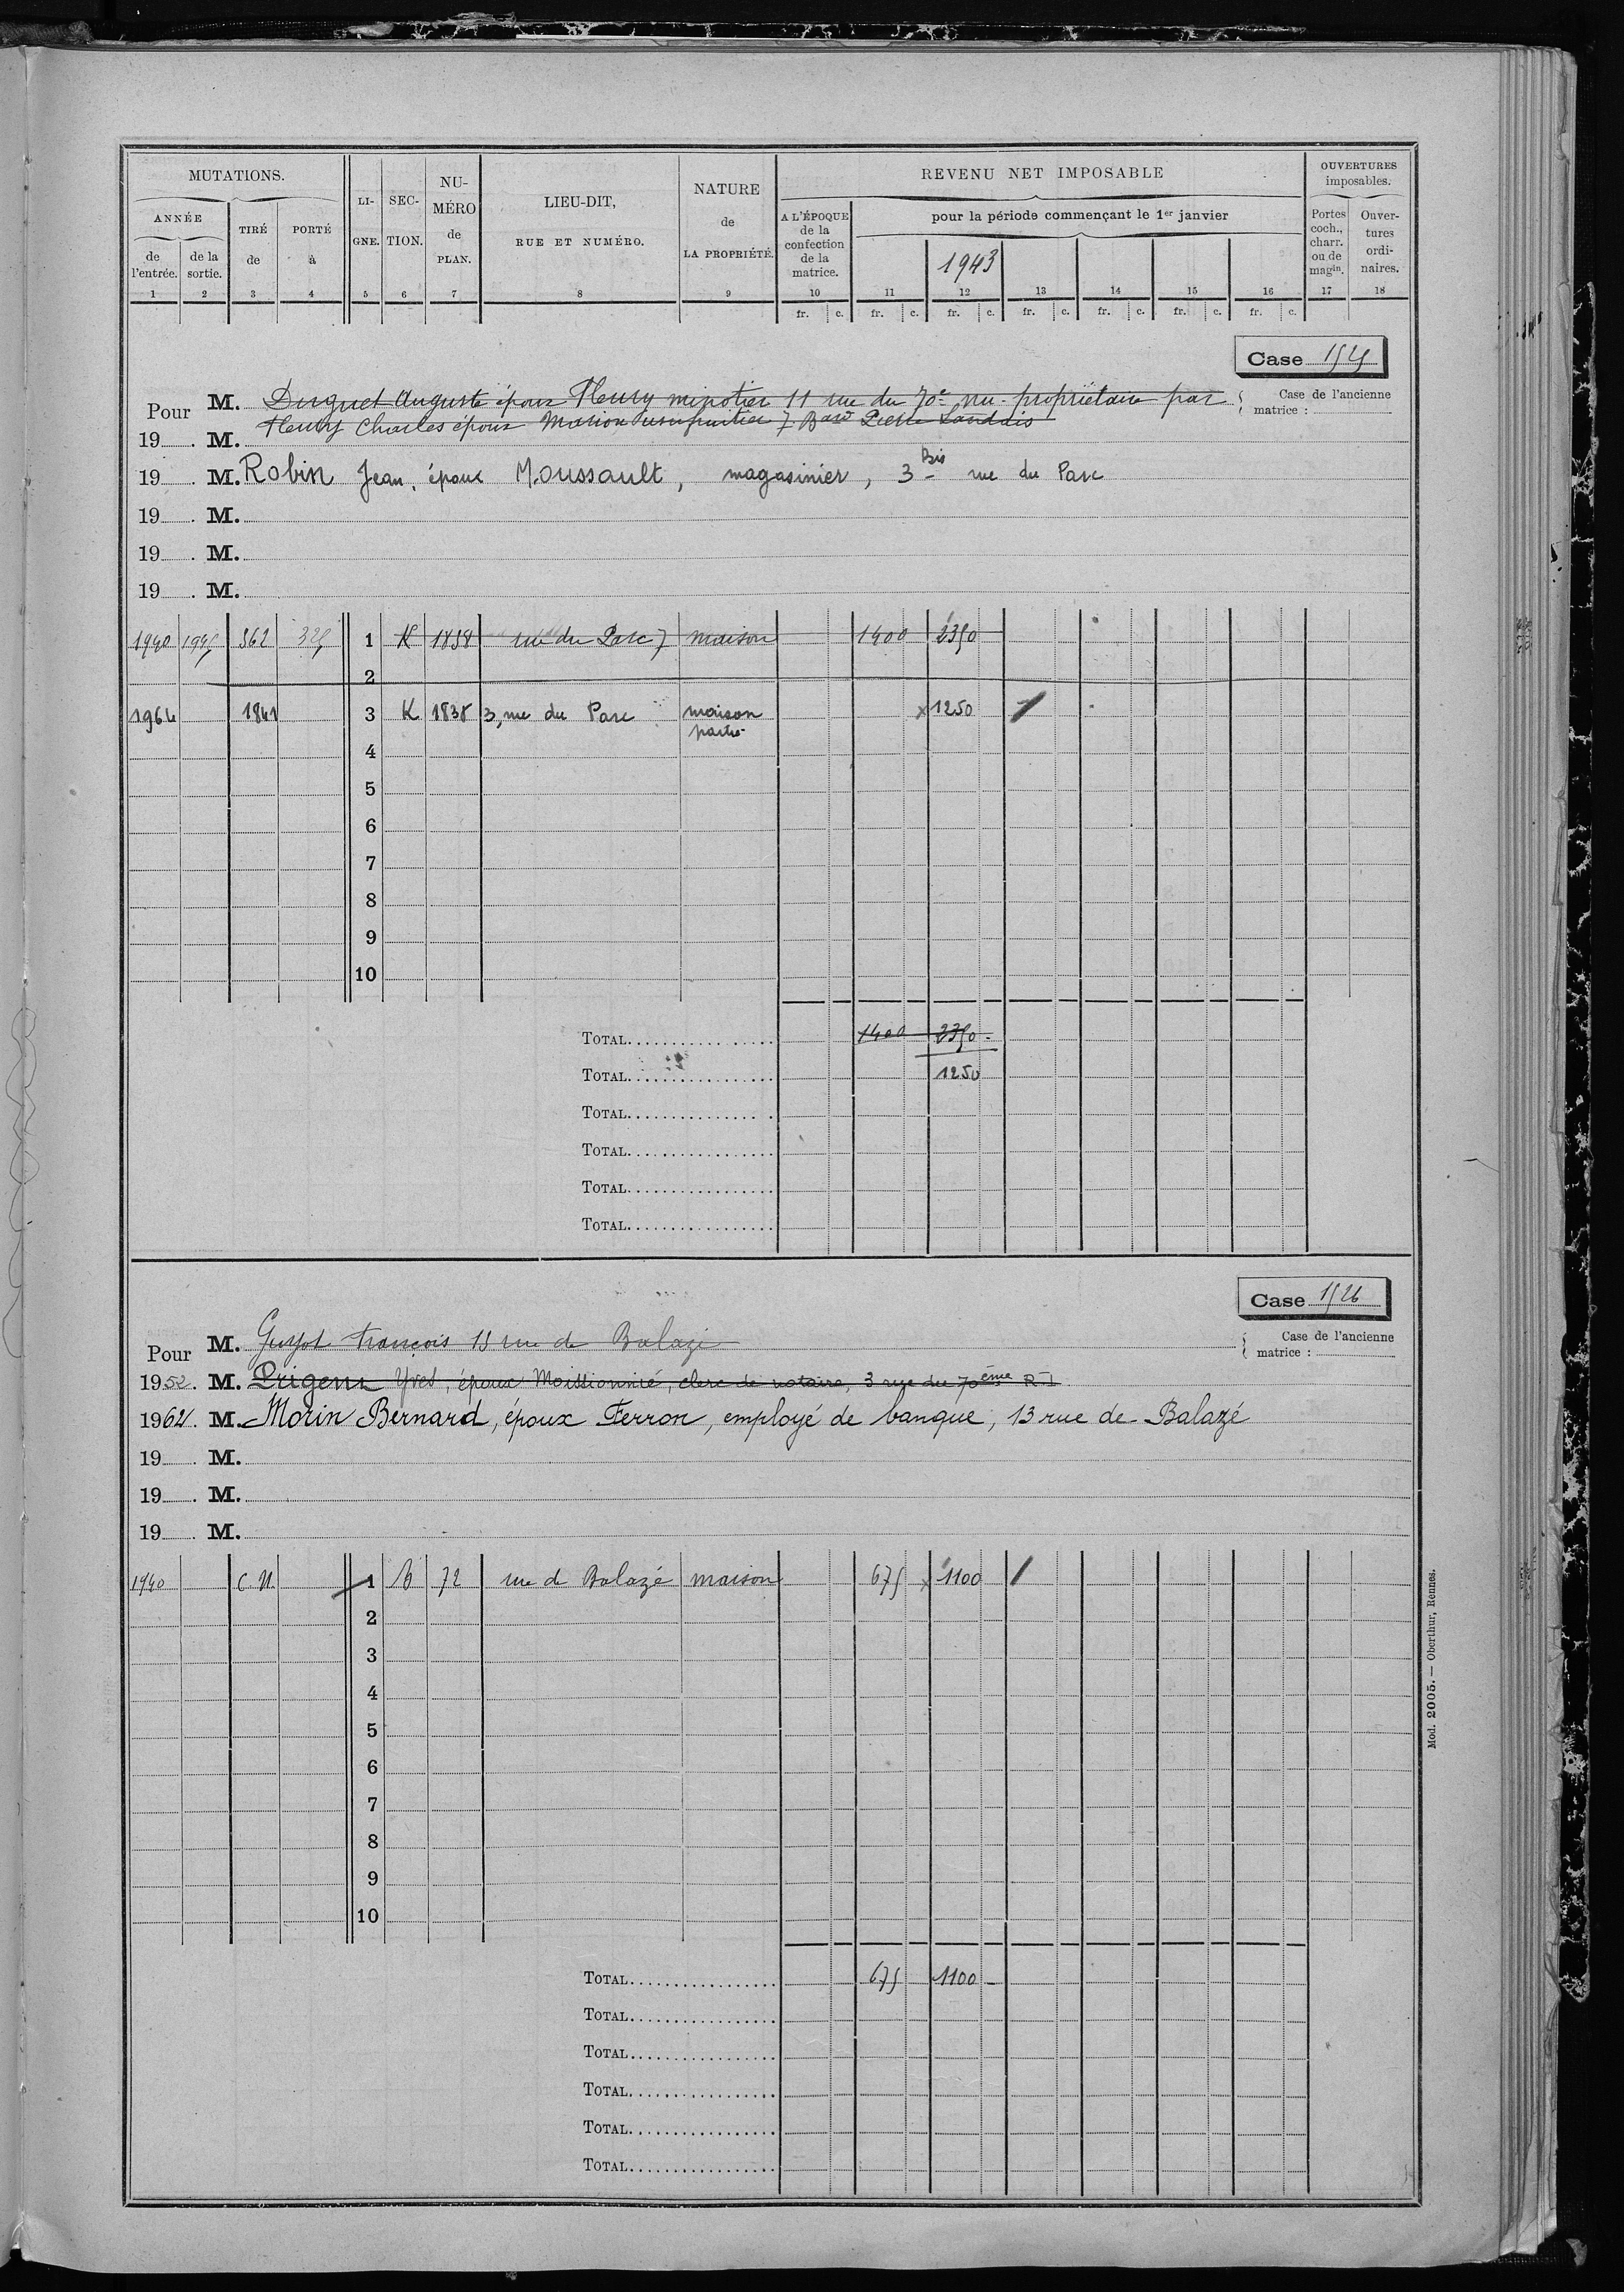 MUTATIONS.
ANNÉE
de l'entrée.
de la sortie.
TIRÉ de
PORTÉ à
LI-GNE.
SEC-TION.
NU-MÉRO de PLAN.
LIEU-DIT,
RUE ET NUMÉRO.
NATURE de LA PROPRIÉTÉ.
REVENU NET IMPOSABLE
A L'ÉPOQUE de la confection de la matrice.
pour la période commençant le 1er janvier
1943
OUVERTURES imposables.
Portes coch., charr. ou de magin.
Ouver-tures ordi-naires.
1 2 3 4 5 6 7 8 9 10 11 12 13 14 15 16 17 18
fr. c. fr. c. fr. c. fr. c. fr. c. fr. c. fr. c.
Case 1525
Pour M. Duguet Auguste époux Fleury minotier 11 rue du 70e nu-propriétaire par
Case de l'ancienne matrice :
19 . M. Fleury Charles époux Marion usufruitier 7 Bard Pierre Landais
19 . M. Robin Jean, époux Moussault, magasinier, 3 Bis rue du Parc
19 . M.
19 . M.
19 . M.
1940 1945 562 325 1 K 1838 rue du Parc 7 maison 1400 2350
2
1964 1841 3 K 1838 3, rue du Parc maison partie x 1250
4
5
6
7
8
9
10
TOTAL 1400 2350 -
TOTAL 1250
TOTAL
TOTAL
TOTAL
TOTAL
Case 1526
Pour M. Guyot François 13 rue de Balazé
Case de l'ancienne matrice :
1952. M. Prigent Yves, époux Moissionnié, clerc de notaire, 3 rue du 70ème R I
1962. M. Morin Bernard, époux Ferron, employé de banque, 13 rue de Balazé
19 . M.
19 . M.
19 . M.
1940 C N. 1 72 rue de Balazé maison 675 x 1100
2
3
4
5
6
7
8
9
10
TOTAL 675 1100 -
TOTAL
TOTAL
TOTAL
TOTAL
TOTAL
Mod. 2005. — Oberthur, Rennes.